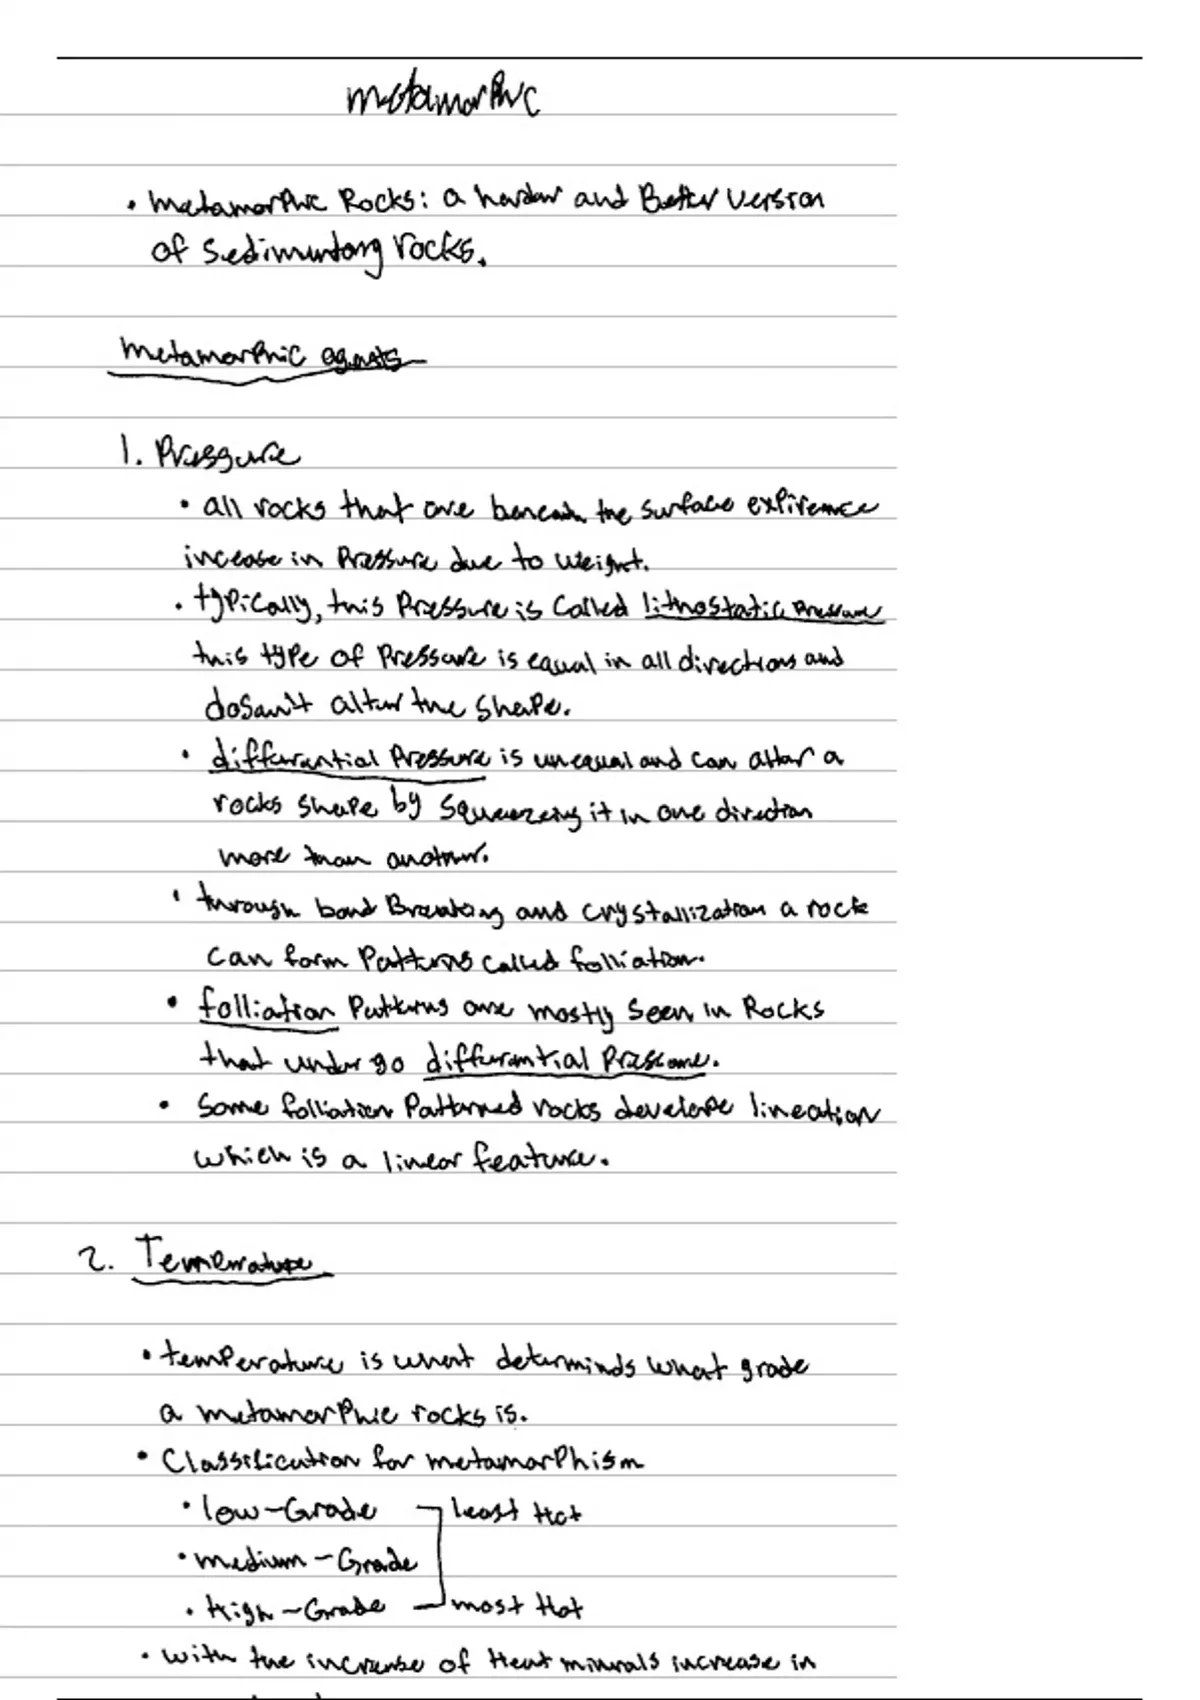 metamorphic
• metamorphic Rocks: a harder and Better version
of sedimentary rocks.
metamorphic agents
1. Pressure
• all rocks that are beneath the surface expirence
incease in Pressure due to weight.
• typically, this Pressure is called lithostatic Pressure
this type of Pressure is equal in all directions and
dosan't alter the shape.
• differential Pressure is unequal and can alter a
rocks shape by squeezing it in one direction
more than another.
• through bond Breaking and crystallization a rock
can form Patterns called folliation.
• folliation Patterns are mostly seen in Rocks
that under go differential Pressure.
• Some folliation Patterned rocks develope lineation
which is a linear feature.
2. Temperature
• temperature is what determinds what grade
a metamorphic rocks is.
• Classification for metamorphism
• low-Grade least Hot
• medium-Grade
• High-Grade most Hot
• with the increase of Heat minerals increase in